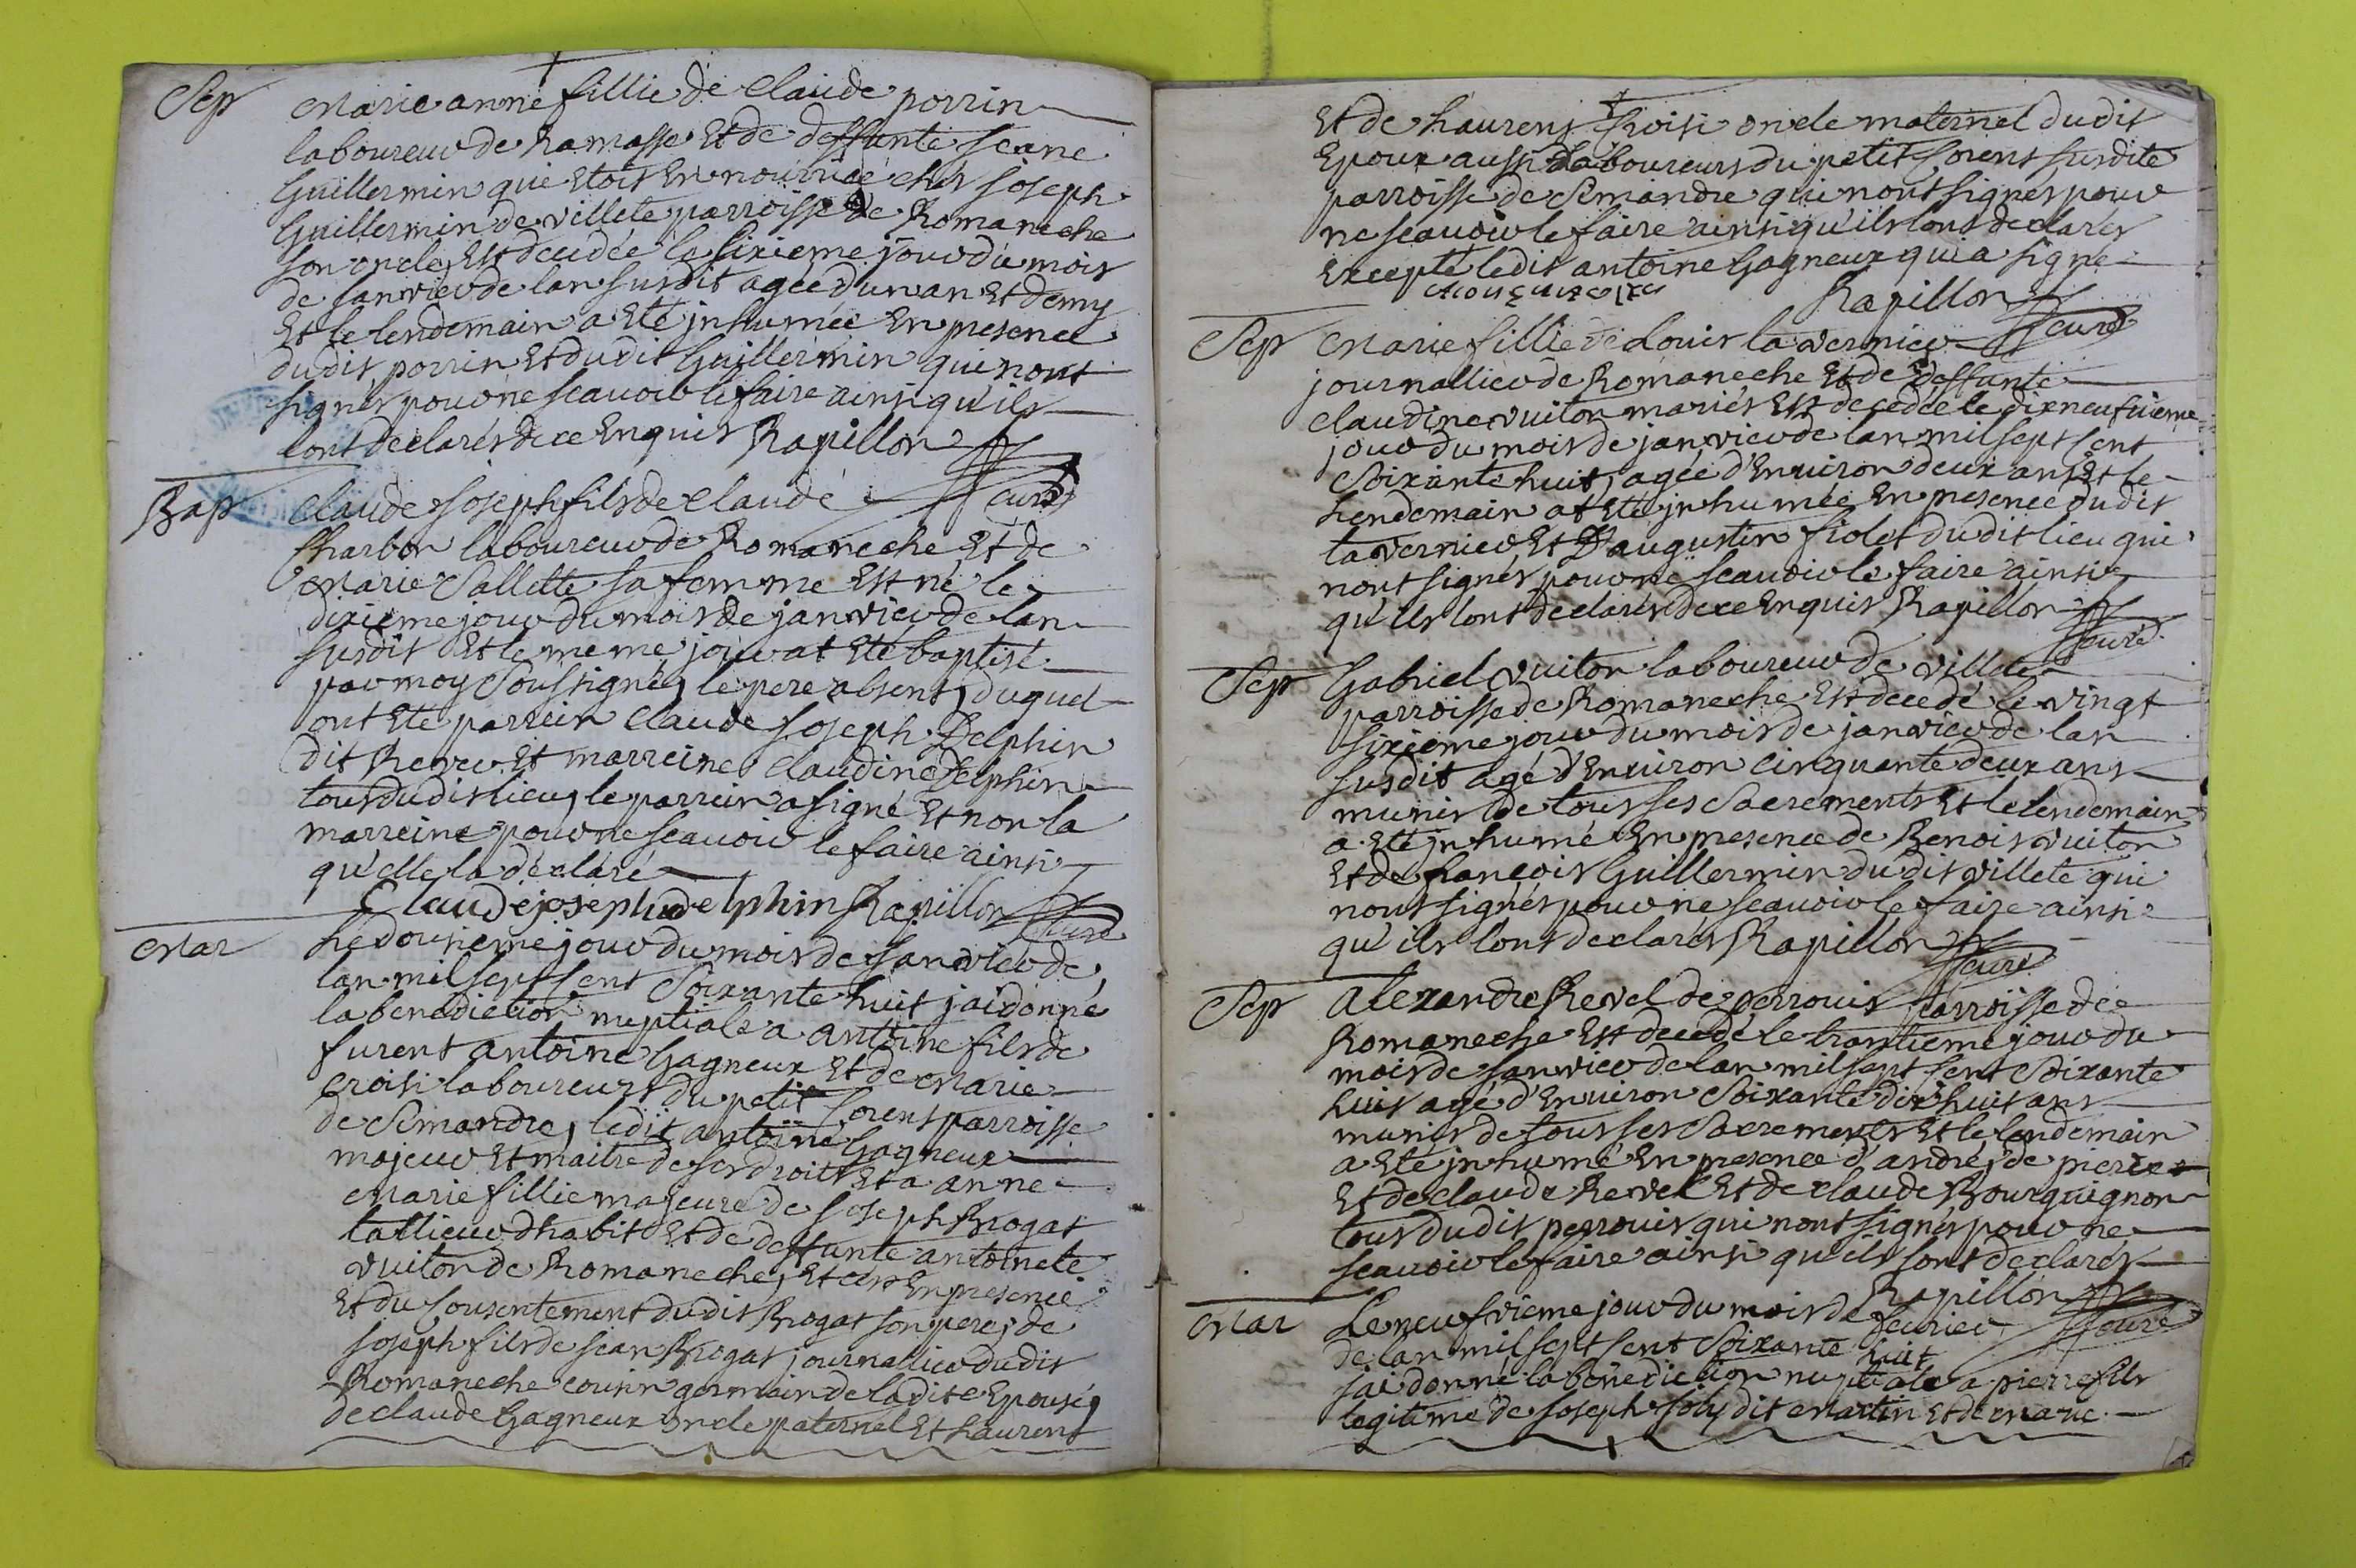 Sep Marie anne fillie de Claude porrin
laboureur de Ramasse Et de deffunte Jeane
Guillermin qui Etoit En nourice ches Joseph
Guillermin de villete parroisse de Romaneche
son oncle, Est decedée le sixieme jour du mois
de janvier de lan susdit agée d'un an Et demy
Et le lendemain a Eté jnhumée En presence
dudit porrin Et dudit Guillermin qui nont
signés pour ne scauoir le faire ainsi qu'ils
lont declarés de ce Enquis Rapillon
curé
Bap Claude Joseph fils de Claude
Charbon laboureur de Romaneche Et de
Marie Sallette sa femme Est né le
dixieme jour du mois de janvier de lan
susdit Et le meme jour at Eté baptisé
par moy soussigné, le pere absent, duquel
ont Eté parrein Claude Joseph Delphin
dit Rever Et marreine Claudine Delphin
tous dudit lieu, le parrein a signé Et non la
marreine pour ne scauoir le faire ainsi
qu'elle la declaré
Claude joseph delphin Rapillon curé
Mar Le dousieme jour du mois de Janvier de
lan mil sept sent Soixante huit jai donné
la benediction nuptiale a antoine fils de
furent antoine Gagneux Et de Marie
Croisi laboureurs du petit Corent parroisse
de Simandre, ledit antoine Gagneux
majeur Et maitre de ses droits Et a anne
Marie fillie majeure de Joseph Brogat
tallieur dhabit Et de deffunte antoinete
vuiton de Romaneche, Et ces En presence
Et du Consentement dudit Brogat son pere, de
Joseph fils de jean Brogat journallier dudit
Romaneche cousin germain de ladite Epouse,
de claude Gagneux oncle paternel Et Laurent
Et de Laurent Croisi oncle maternel dudit
Epoux aussi Laboureurs du petit Corent susdite
parroisse de Simandre qui nont signés pour
ne scauoir le faire ainsi qu'ils lont declarés
Excepté ledit antoine Gagneux qui a signé
Rapillon
curé
Sep Marie fillie de Louis la vernier
journallier de Romaneche Et de deffunte
Claudine vuiton mariés Est decedée le dixneufuieme
jour du mois de janvier de lan mil sept sent
Soixante huit, agée d'Enuiron deux ans Et le
Lendemain at Eté jnhumée En presence dudit
lavernier Et D'augustin fiolet dudit lieu qui
nont signés pour ne scauoir le faire ainsi
qu'ils lont declarés de ce Enquis Rapillon
curé
Sep Gabriel vuiton laboureur de villete
parroisse de Romaneche Est decedé le vingt
sixieme jour du mois de janvier de lan
susdit agé d'Enuiron Cinquante deux ans
munis de tous ses Sacrements Et le lendemain
a Eté jnhumé En presence de Benoit vuiton
Et de francois Guillermin dudit villete qui
nont signés pour ne scauoir le faire ainsi
qu'ils lont declarés Rapillon
curé
Sep Alexandre Revel de perrouis parroisse de
Romaneche Est decedé le trantieme jour du
mois de Janvier de lan mil sept sent Soixante
huit agé d'Enuiron Soixante dixhuit ans
munis de tous ses Sacrements Et le lendemain
a Eté jnhumé En presence d'andré, de pierre
Et de claude Revel Et de claude Bourguignon
tous dudit perrouis qui nont signés pour ne
scauoir le faire ainsi qu'ils lont declarés
Rapillon
curé
Mar Le neufvieme jour du mois de feurier
de lan mil sept sent Soixante huit
jai donné la benediction nuptiale a pierre fils
legitime de Joseph Joly dit Martin Et de Marie